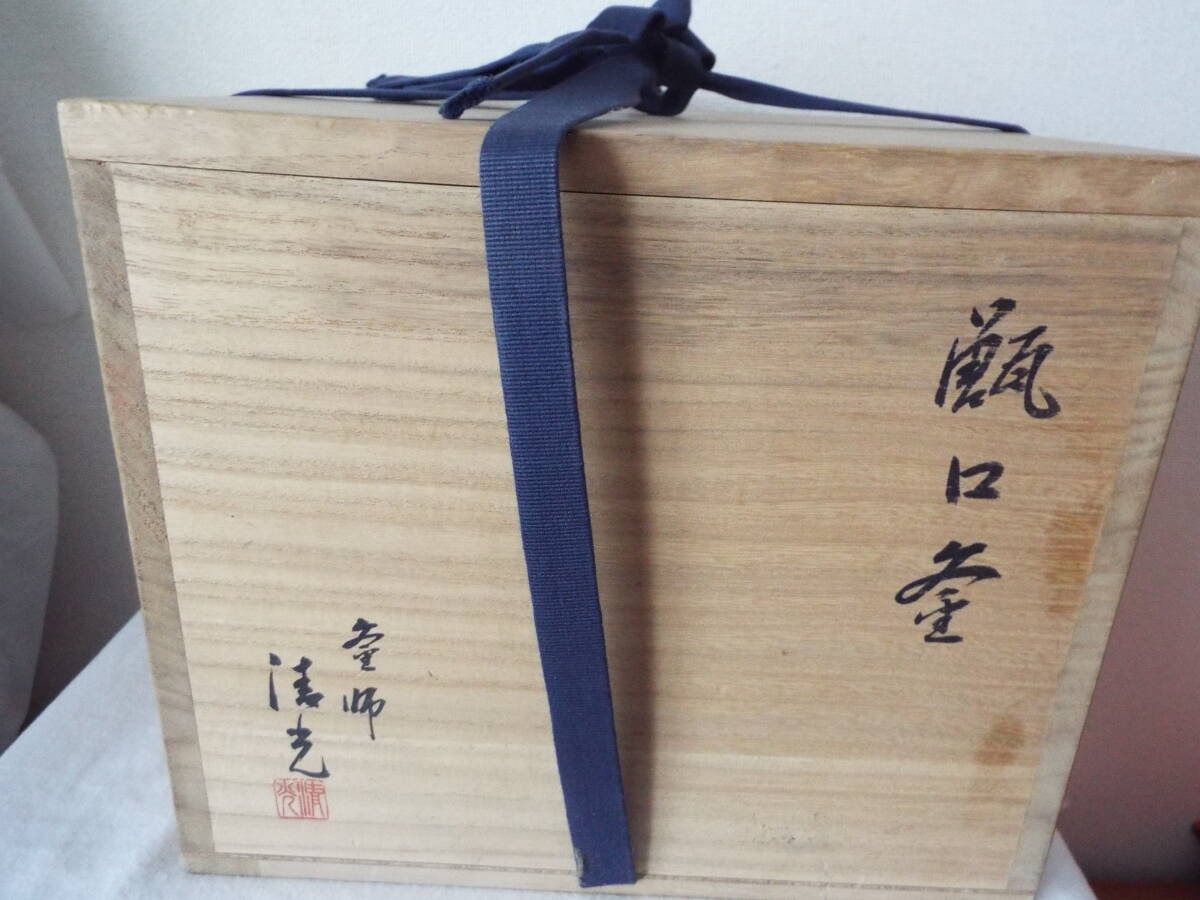 甑口釜
釜師
清光
清光